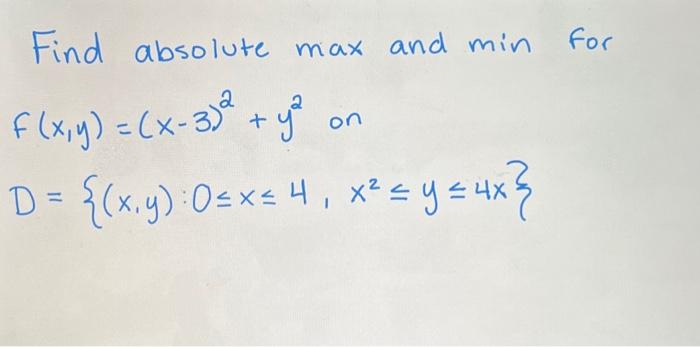 Find absolute max and min for
f(x,y) = (x-3)² + y² on
D = {(x,y): 0≤x≤4, x² ≤ y ≤ 4x}